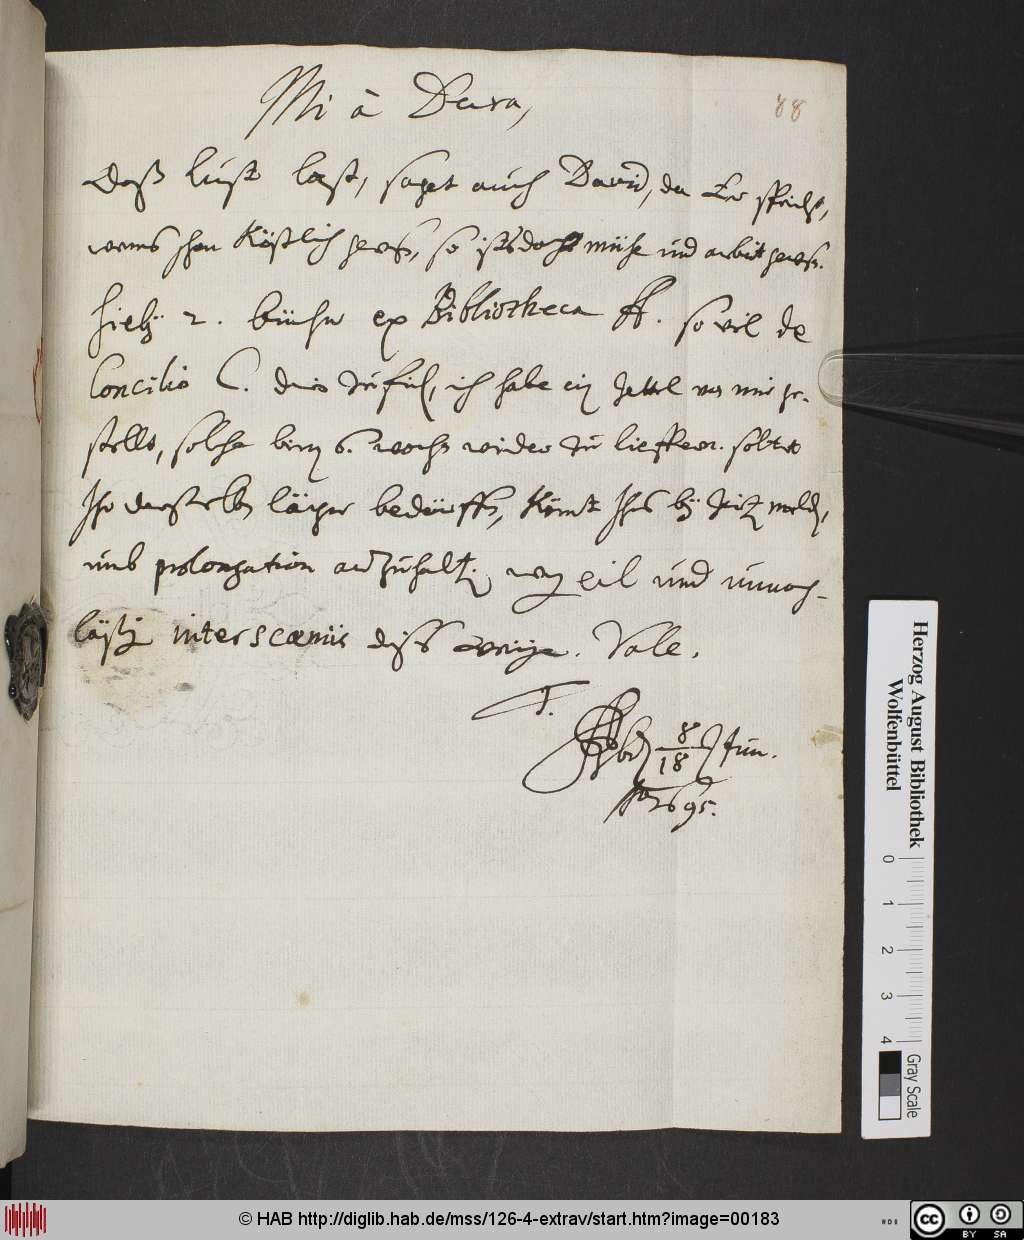 Mi à Dura,
88
Daß lust last, saget auch David, da Er spricht,
wens schon Köstlich gewes, so ists doch mühe und arbeit gewes.
hiebey 2. bücher ex Bibliotheca ff. so vil de
Concilio C. darin zu finden, ich habe ein Zettel von mir ge-
stellt, solche binnen 6. wochen wider zu lieffern. soltet
Ihr derselben länger bedürffen, Könt Ihrs bey Zeiten melden,
umb prolongation anzuhalten, eil und unnach-
läßig interscaeniis diß wenige. Vale.
T.
8/18 Jun.
1695.
Herzog August Bibliothek
Wolfenbüttel
0 1 2 3 4
Gray Scale
© HAB http://diglib.hab.de/mss/126-4-extrav/start.htm?image=00183
cc BY SA